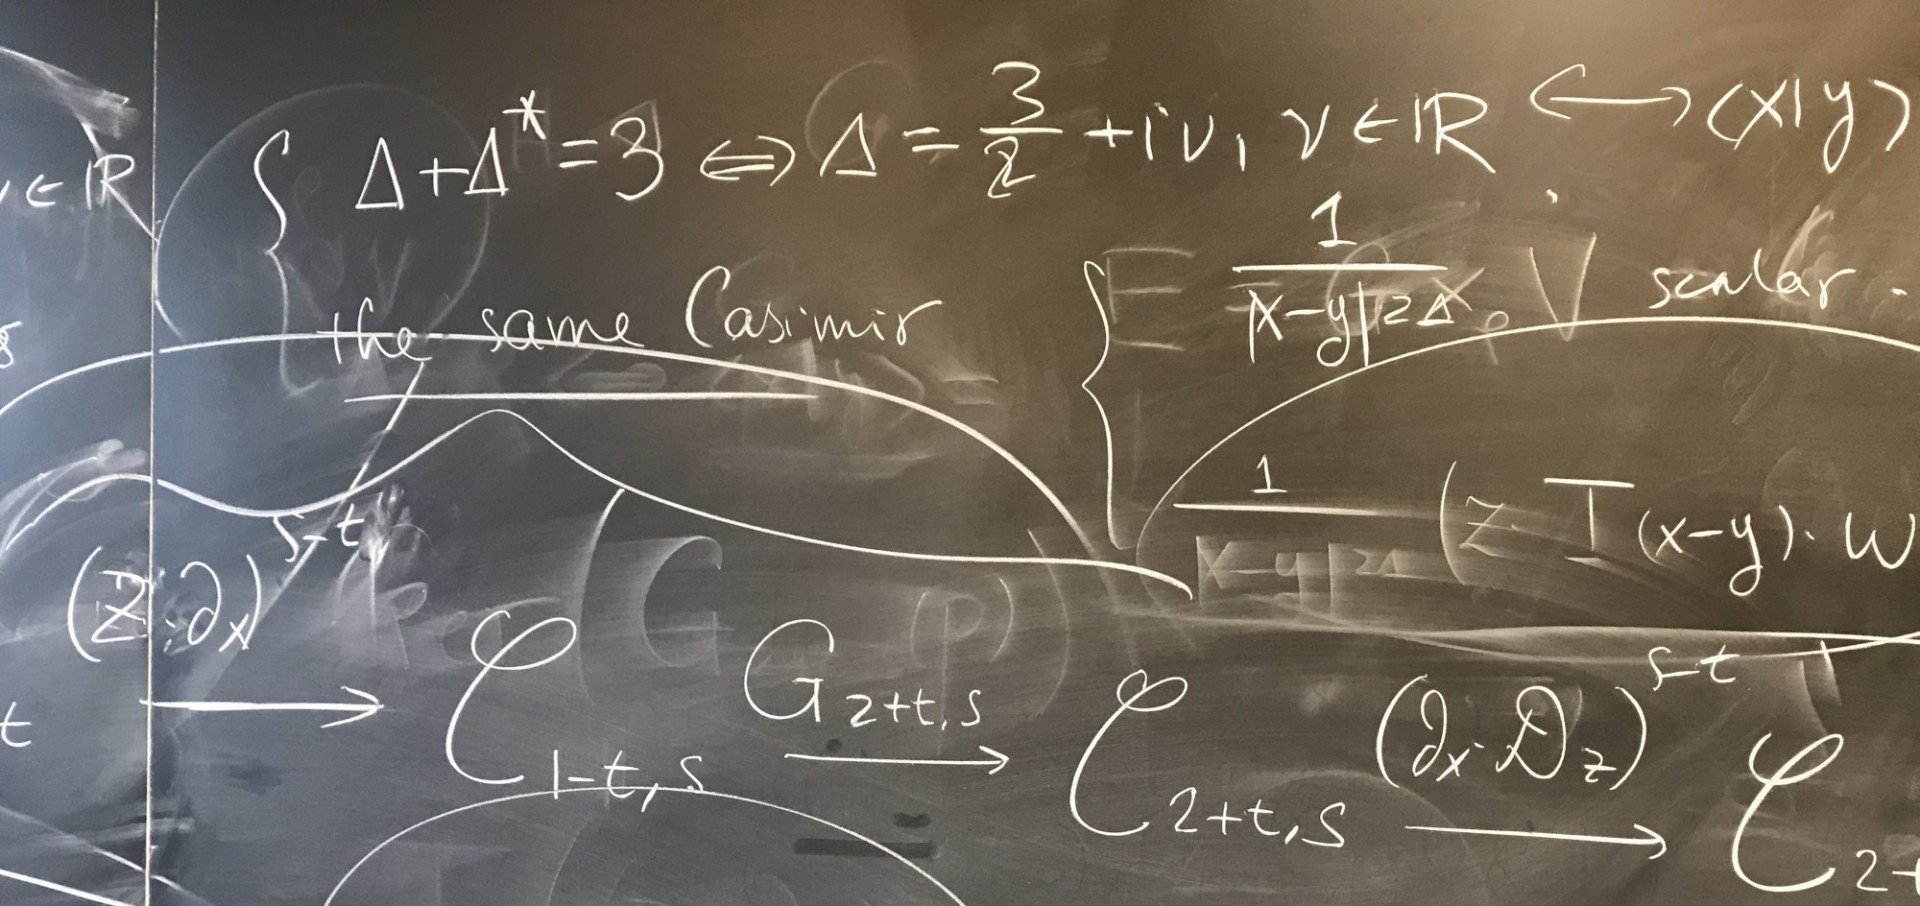 { Δ+Δ* = 3 ⇔ Δ = 3/2 + iν, ν ∈ ℝ ⟷ ⟨x|y⟩
ν ∈ ℝ
the same Casimir
{ 1/|x-y|^{2Δ}, scalar.
1/|x-y|^{2Δ} (z· T(x-y)· w
(z·∂_x)^{s-t}
t ⟶ 𝒞_{1-t,s} G_{2+t,s} ⟶ 𝒞_{2+t,s} (∂_x·𝒟_z)^{s-t} ⟶ 𝒞_{2+